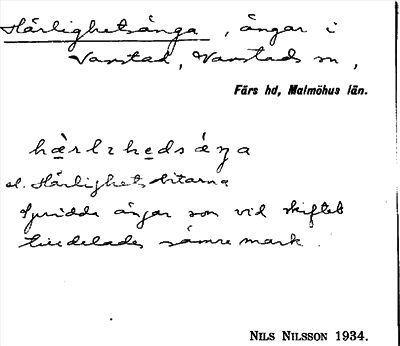 Härlighetsånga, ångar i
Vanstad, Vanstads sn,
Färs hd, Malmöhus län.
härlzhedsåza
el. Härlighetsbitarna
Spridda ångar som vid skiftet
tilldelades sämre mark.
NILS NILSSON 1934.